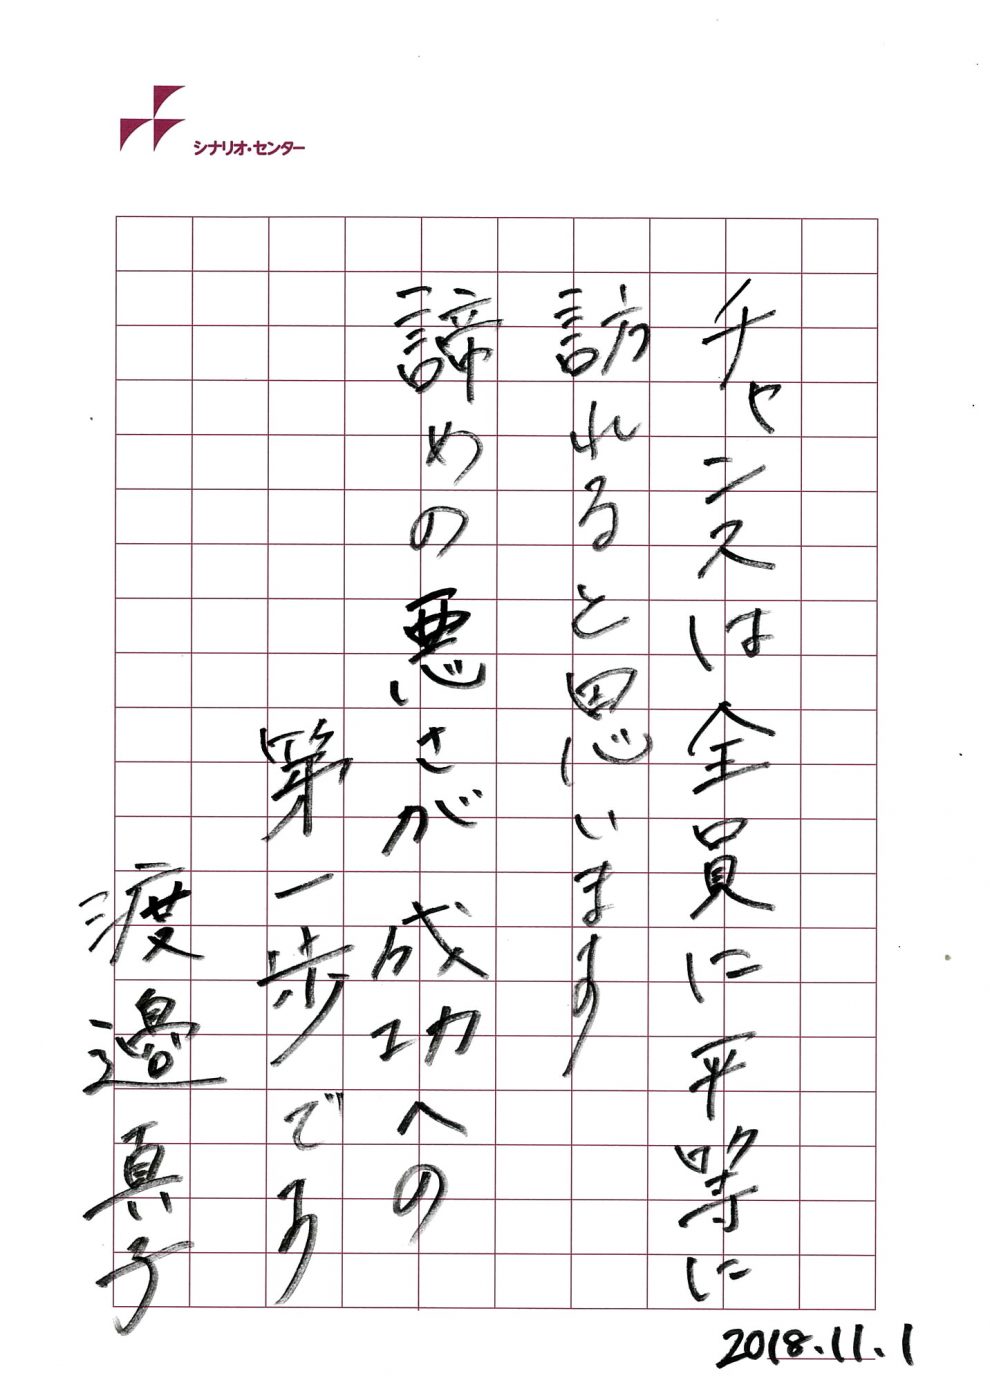 シナリオ・センター
チャンスは全員に平等に
訪れると思います
諦めの悪さが成功への
第一歩です
渡邉真子
2018.11.1